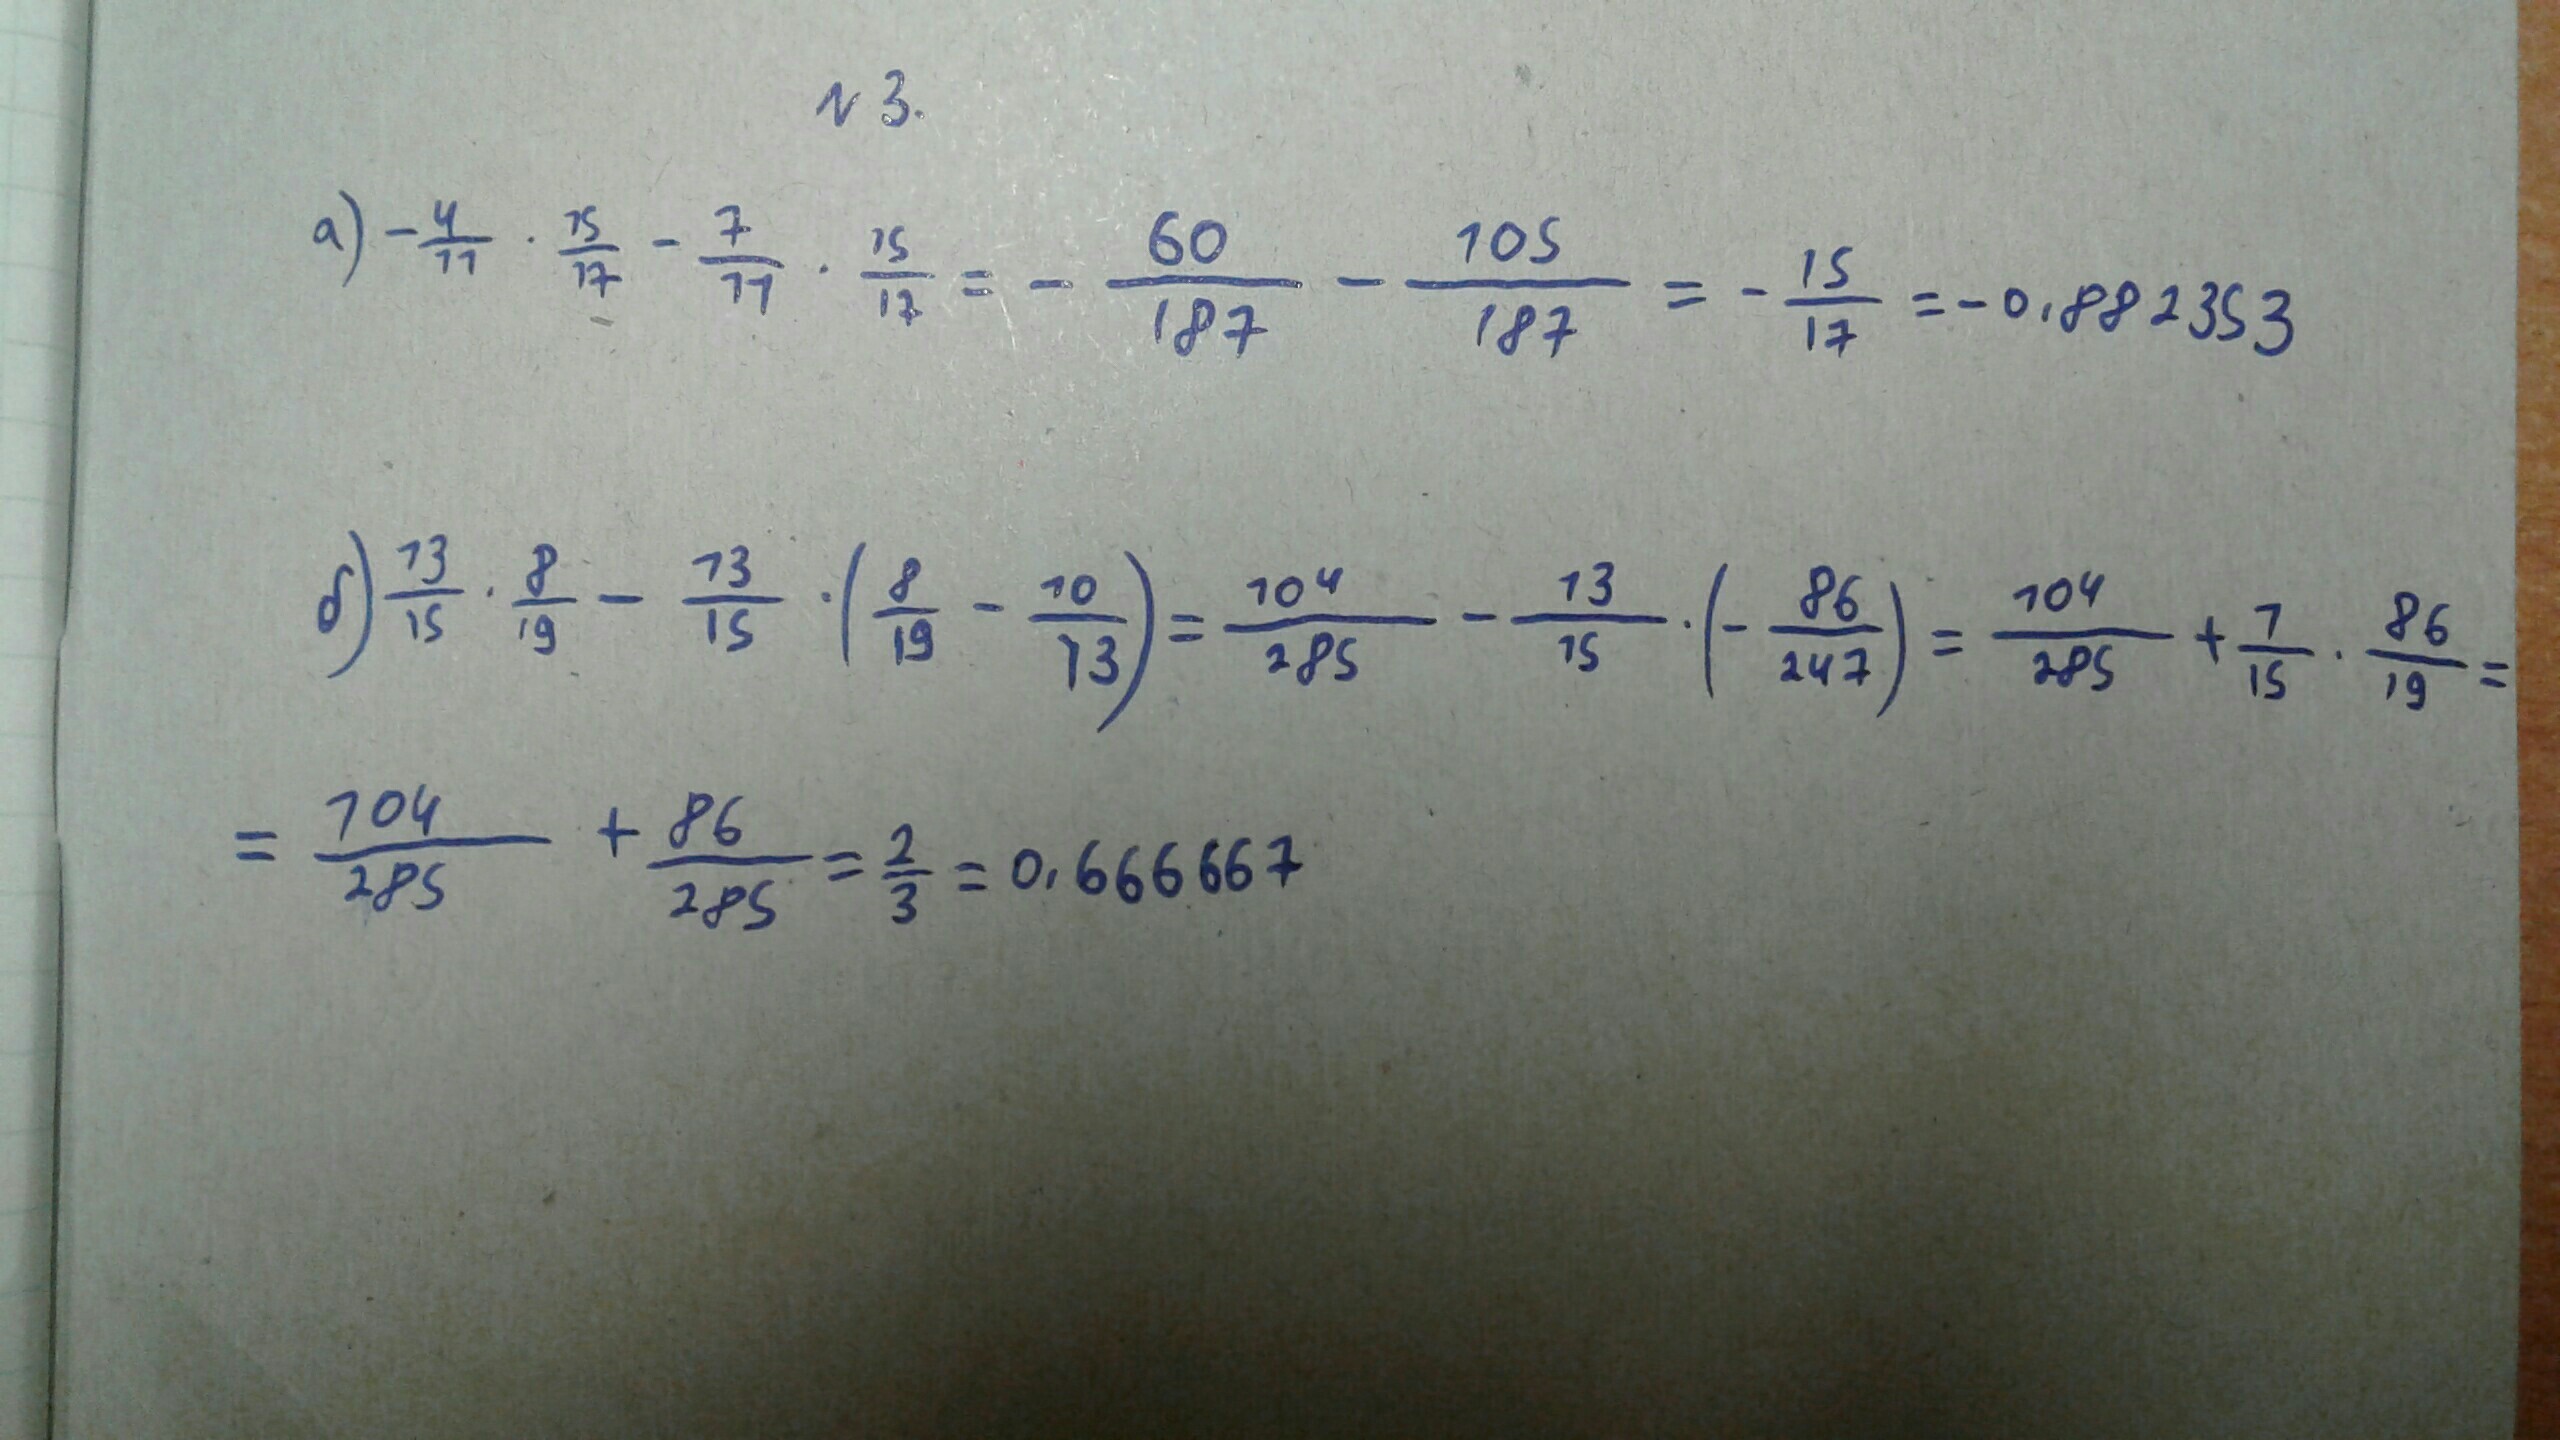 N 3.
а) - 4/11 · 15/17 - 7/11 · 15/17 = - 60/187 - 105/187 = - 15/17 = - 0.882353
б) 13/15 · 8/19 - 13/15 · (8/19 - 10/13) = 104/285 - 13/15 · (- 86/247) = 104/285 + 1/15 · 86/19 =
= 104/285 + 86/285 = 2/3 = 0.666667